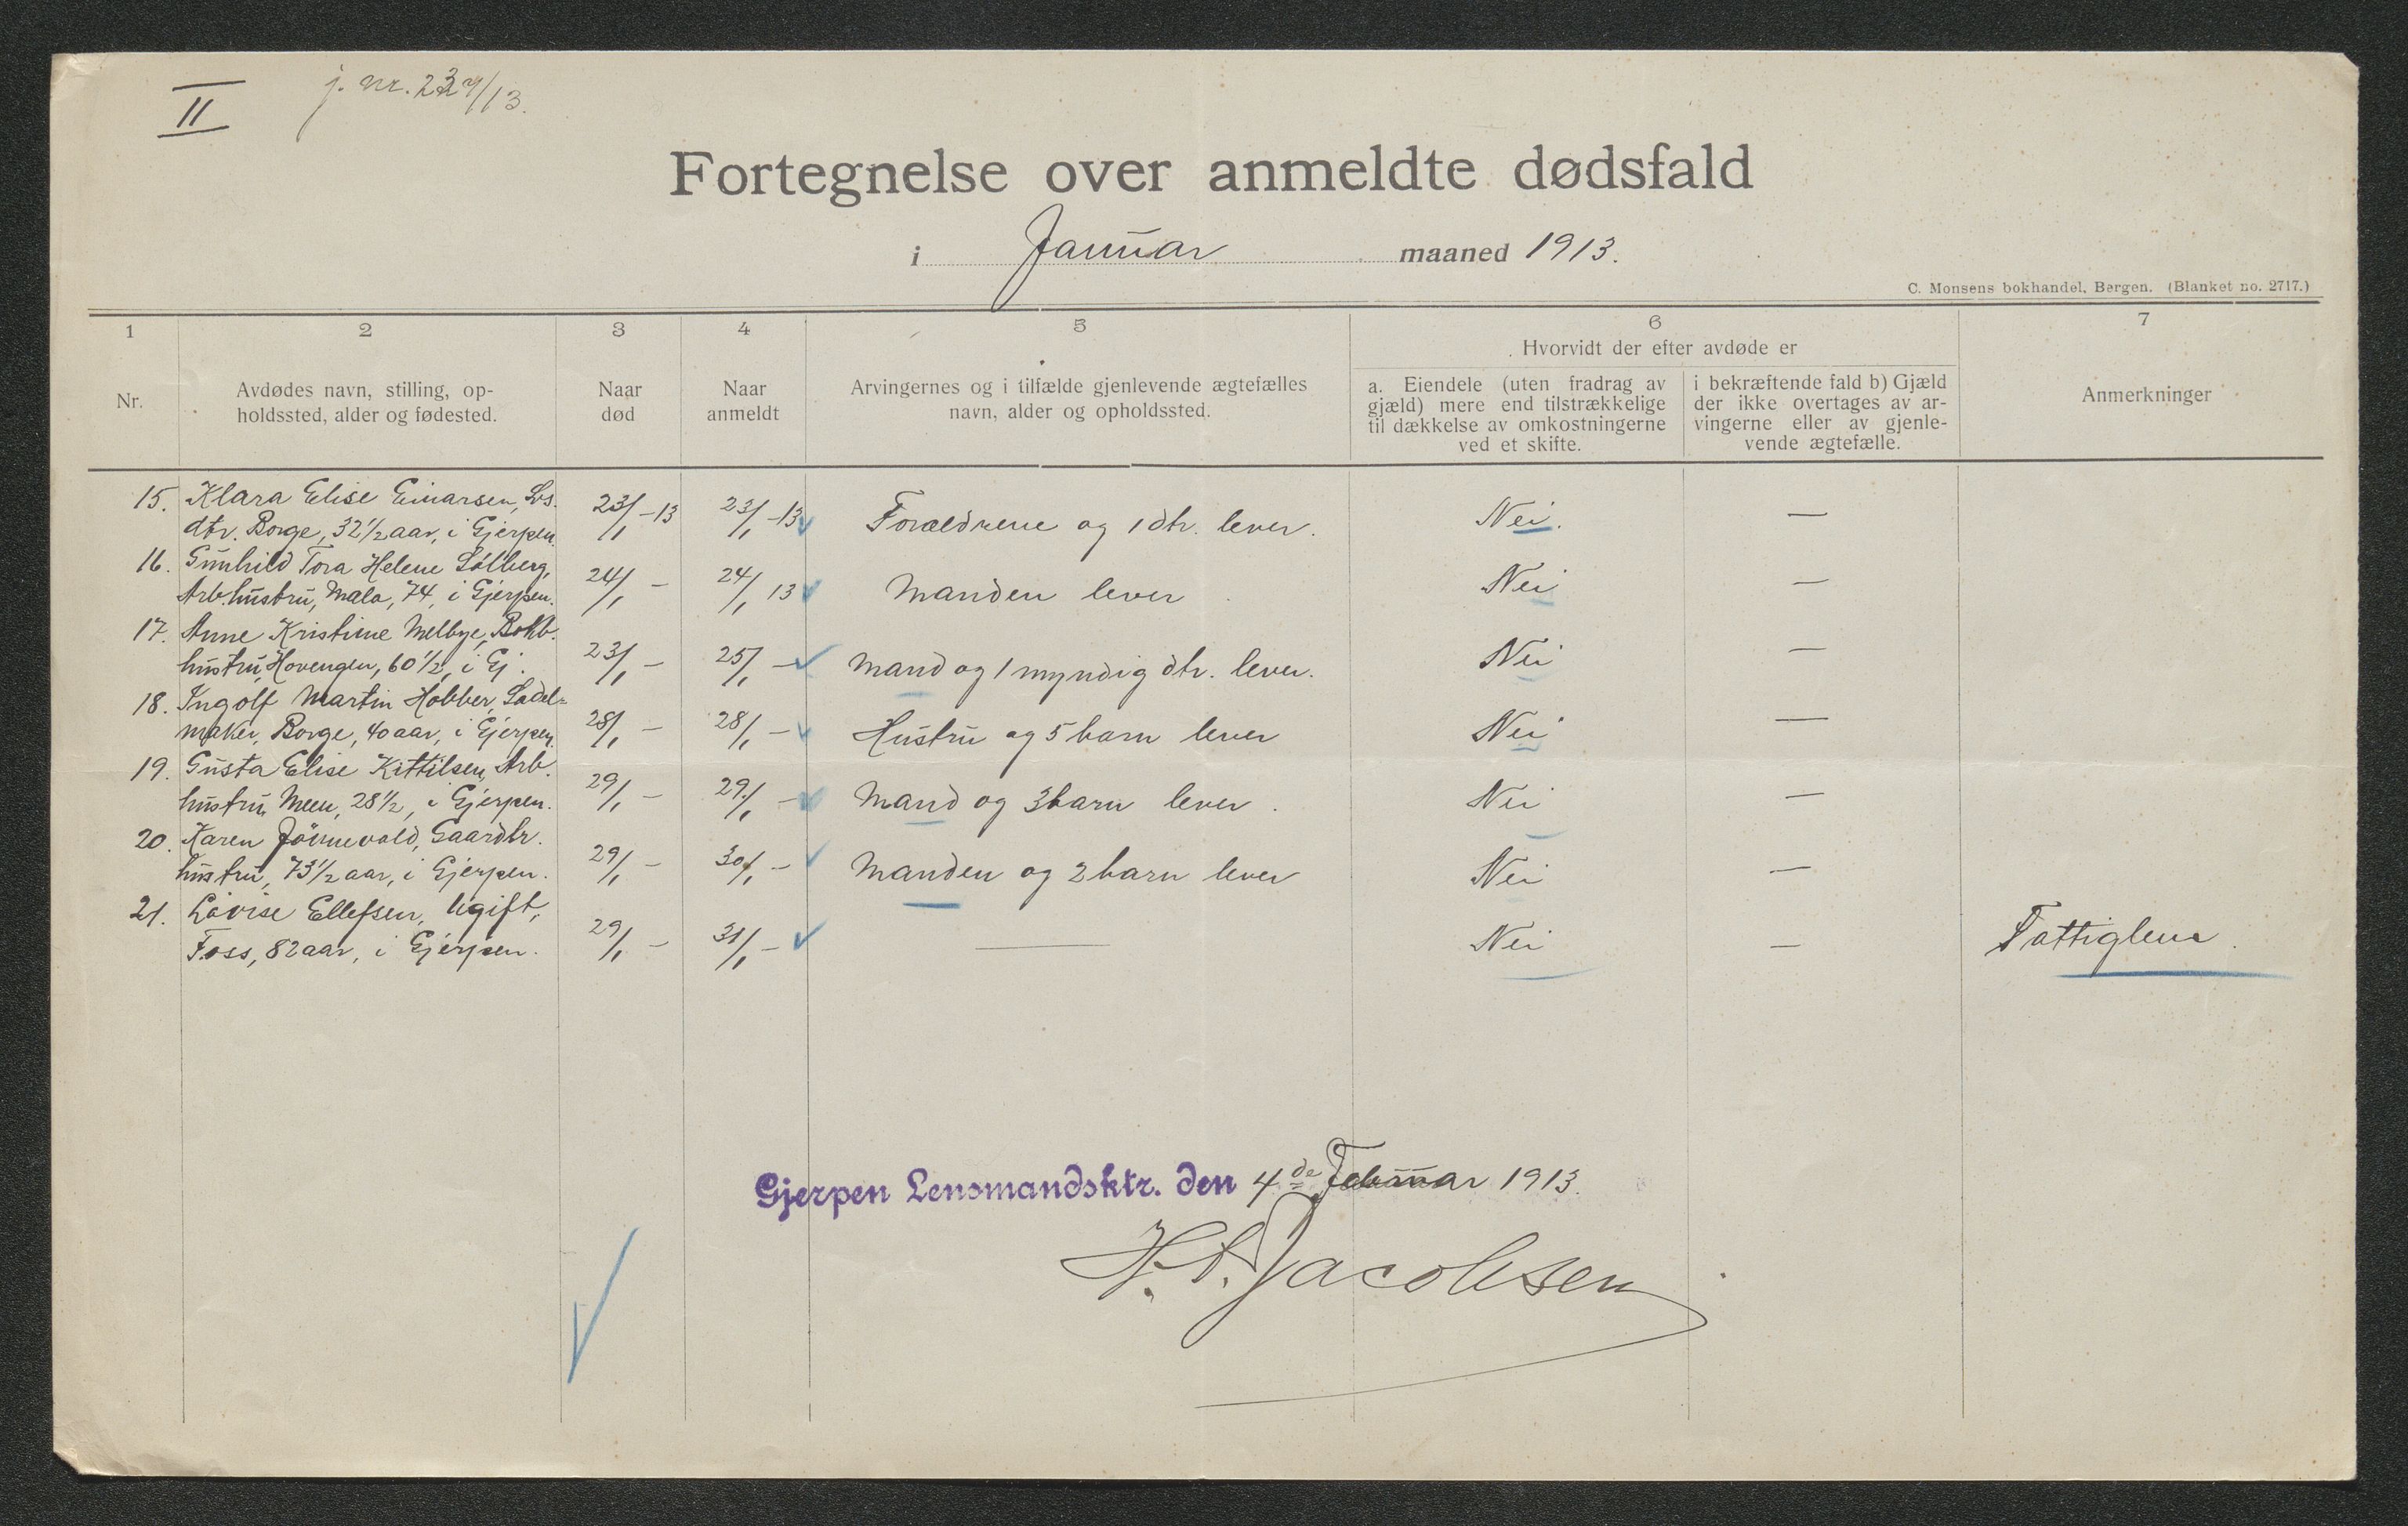 II
j. nr. 229/13.
Fortegnelse over anmeldte dødsfald
i Januar maaned 1913.
C. Monsens bokhandel, Bergen. (Blanket no. 2717.)
1 2 3 4 5 6 7
Hvorvidt der efter avdøde er
Nr.
Avdødes navn, stilling, op-
holdssted, alder og fødested.
Naar
død
Naar
anmeldt
Arvingernes og i tilfælde gjenlevende ægtefælles
navn, alder og opholdssted.
a. Eiendele (uten fradrag av
gjæld) mere end tilstrækkelige
til dækkelse av omkostningerne
ved et skifte.
i bekræftende fald b) Gjæld
der ikke overtages av ar-
vingerne eller av gjenle-
vende ægtefælle.
Anmerkninger
15. Klara Elise Einarsen,
dtr. Borge, 32 1/2 aar, i Gjerpen. 23/1 -13 23/1 -13 Forældrene og 1 dtr. lever. Nei. —
16. Gunhild Tora Helene Solberg,
Arb.hustru, Mæla, 74, i Gjerpen. 24/1 - 24/1 13 Manden lever Nei —
17. Anne Kristine Melbye, Bokb.
hustru, Hovengen, 60 1/2, i Gj. 23/1 - 25/1 - Mand og 1 myndig dtr. lever. Nei —
18. Ingolf Martin Hobber, Sadel-
maker, Borge, 40 aar, i Gjerpen. 28/1 - 28/1 - Hustru og 5 barn lever Nei —
19. Gusta Elise Kittilsen, Arb.
hustru, Meen, 28 1/2, i Gjerpen. 29/1 - 29/1 - Mand og 3 barn lever. Nei —
20. Karen Jönnevald, Gaardbr.
hustru, 73 1/2 aar, i Gjerpen. 29/1 - 30/1 - Manden og 2 barn lever Nei —
21. Lovise Ellefsen, Ugift,
Foss, 82 aar, i Gjerpen. 29/1 - 31/1 - — Nei — Fattiglem.
Gjerpen Lensmandsktr. den 4de Februar 1913.
Jacobsen